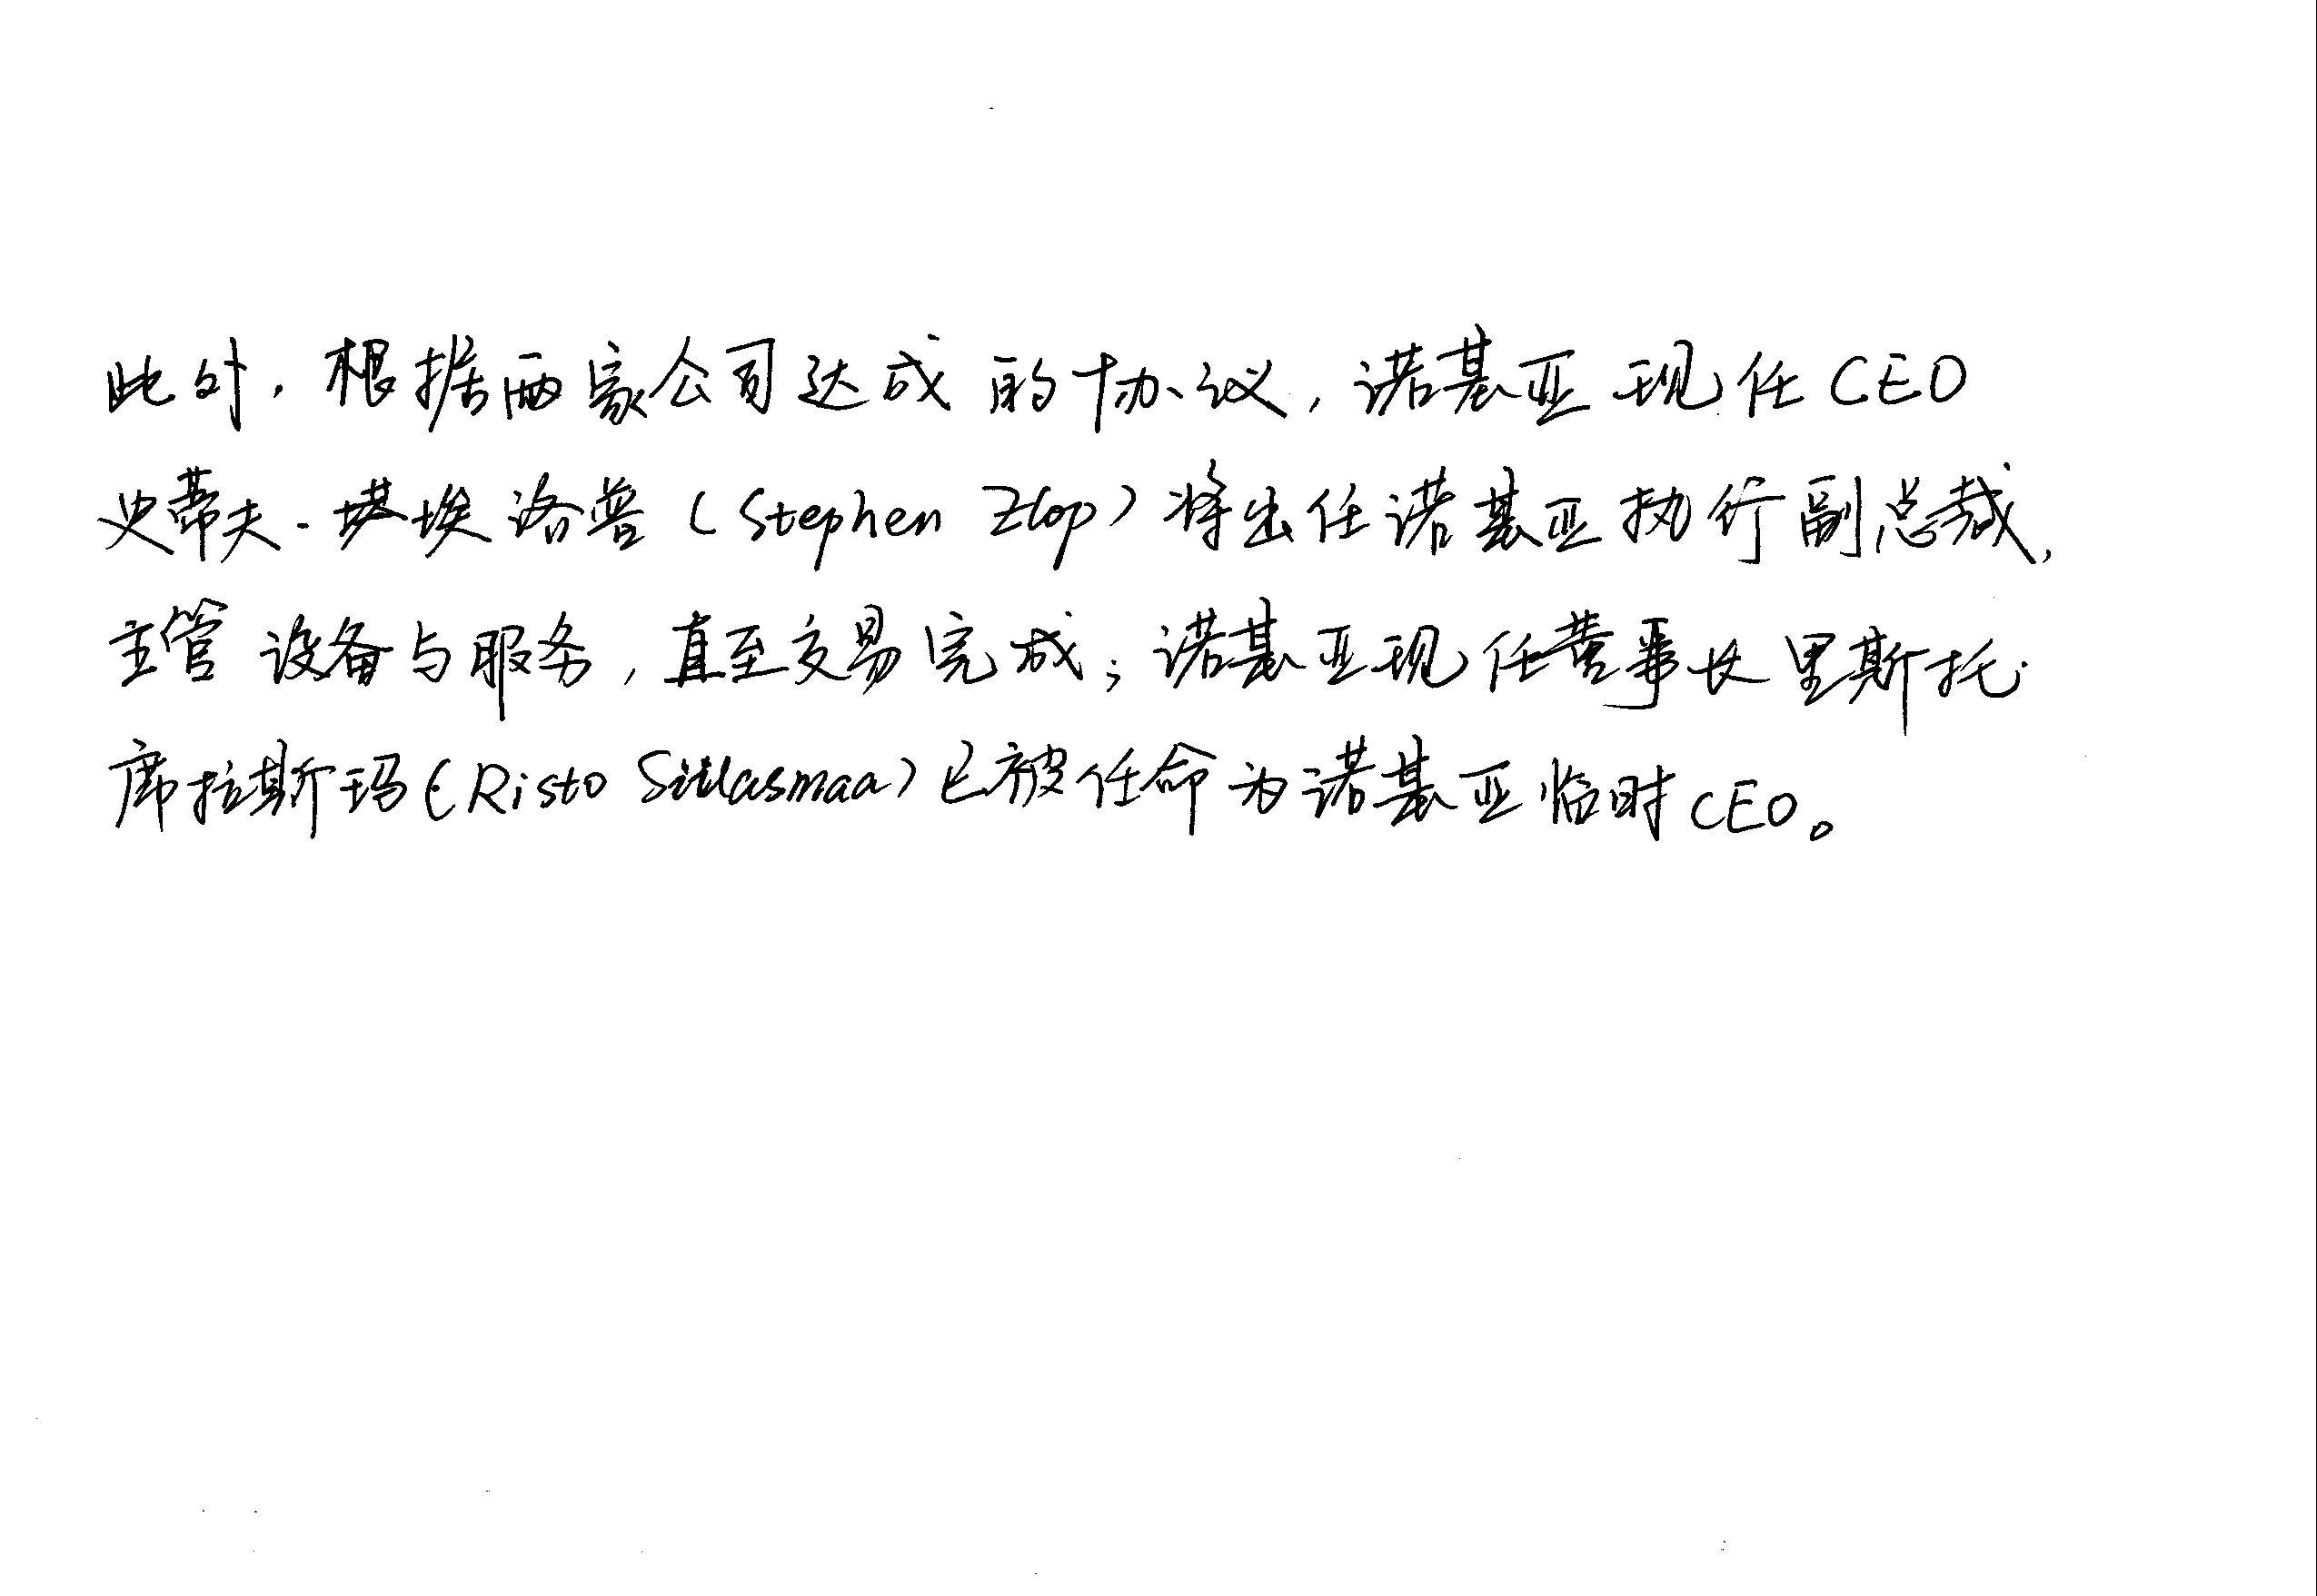 此外，根据两家公司达成的协议，诺基亚现任CEO
史蒂夫·埃洛普（Stephen Elop）将出任诺基亚执行副总裁，
主管设备与服务，直至交易完成；诺基亚现任董事长里斯托·
席拉斯玛（Risto Siilasmaa）已被任命为诺基亚临时CEO。